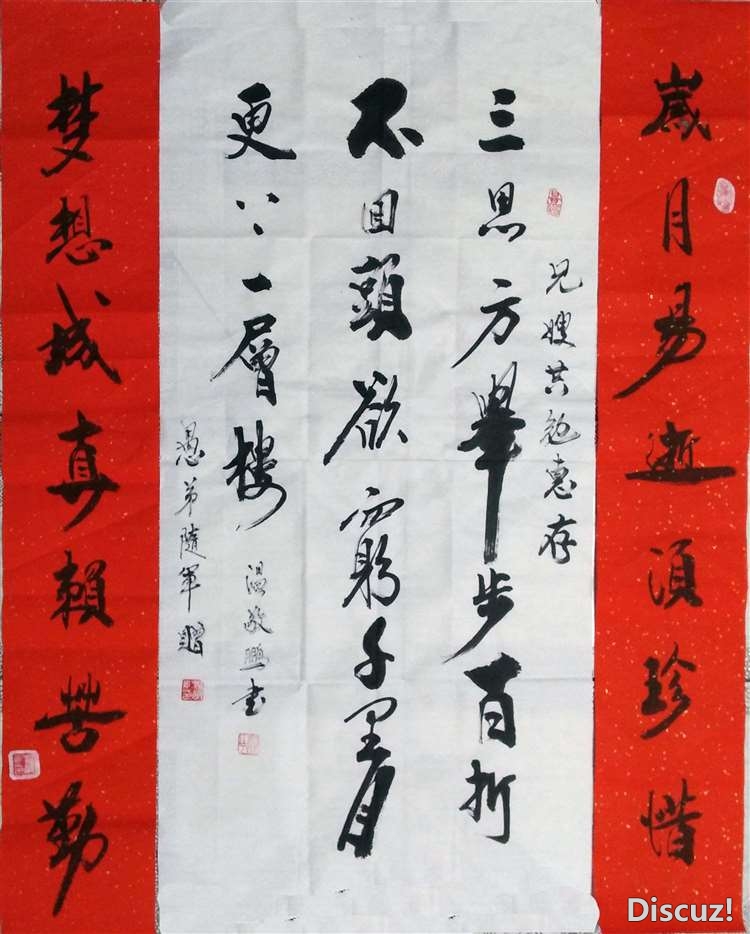 歲月易逝須珍惜
兄嫂共勉惠存
三思方舉步百折
不回頭欲窮千里目
更上一層樓
温敬鵬书
愚弟隨軍贈
梦想成真賴苦勤
Discuz!